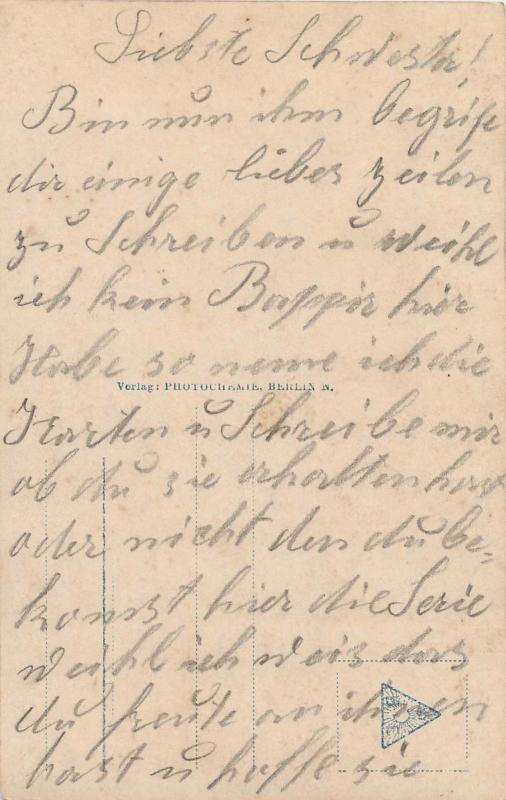 Liebste Schwester!
Bin nun ihm begrife
dir einige liebes zeilen
zu Schreiben u weihl
ich kein Bappir hier
Habe so neme ich die
Verlag: PHOTOCHEMIE, BERLIN N.
Karten u Schreibe mir
ob du sie erhalten hast
oder nicht den du be=
komst hier die Serie
weihl ich weis das
du freute an ihnen
hast u hoffe sie